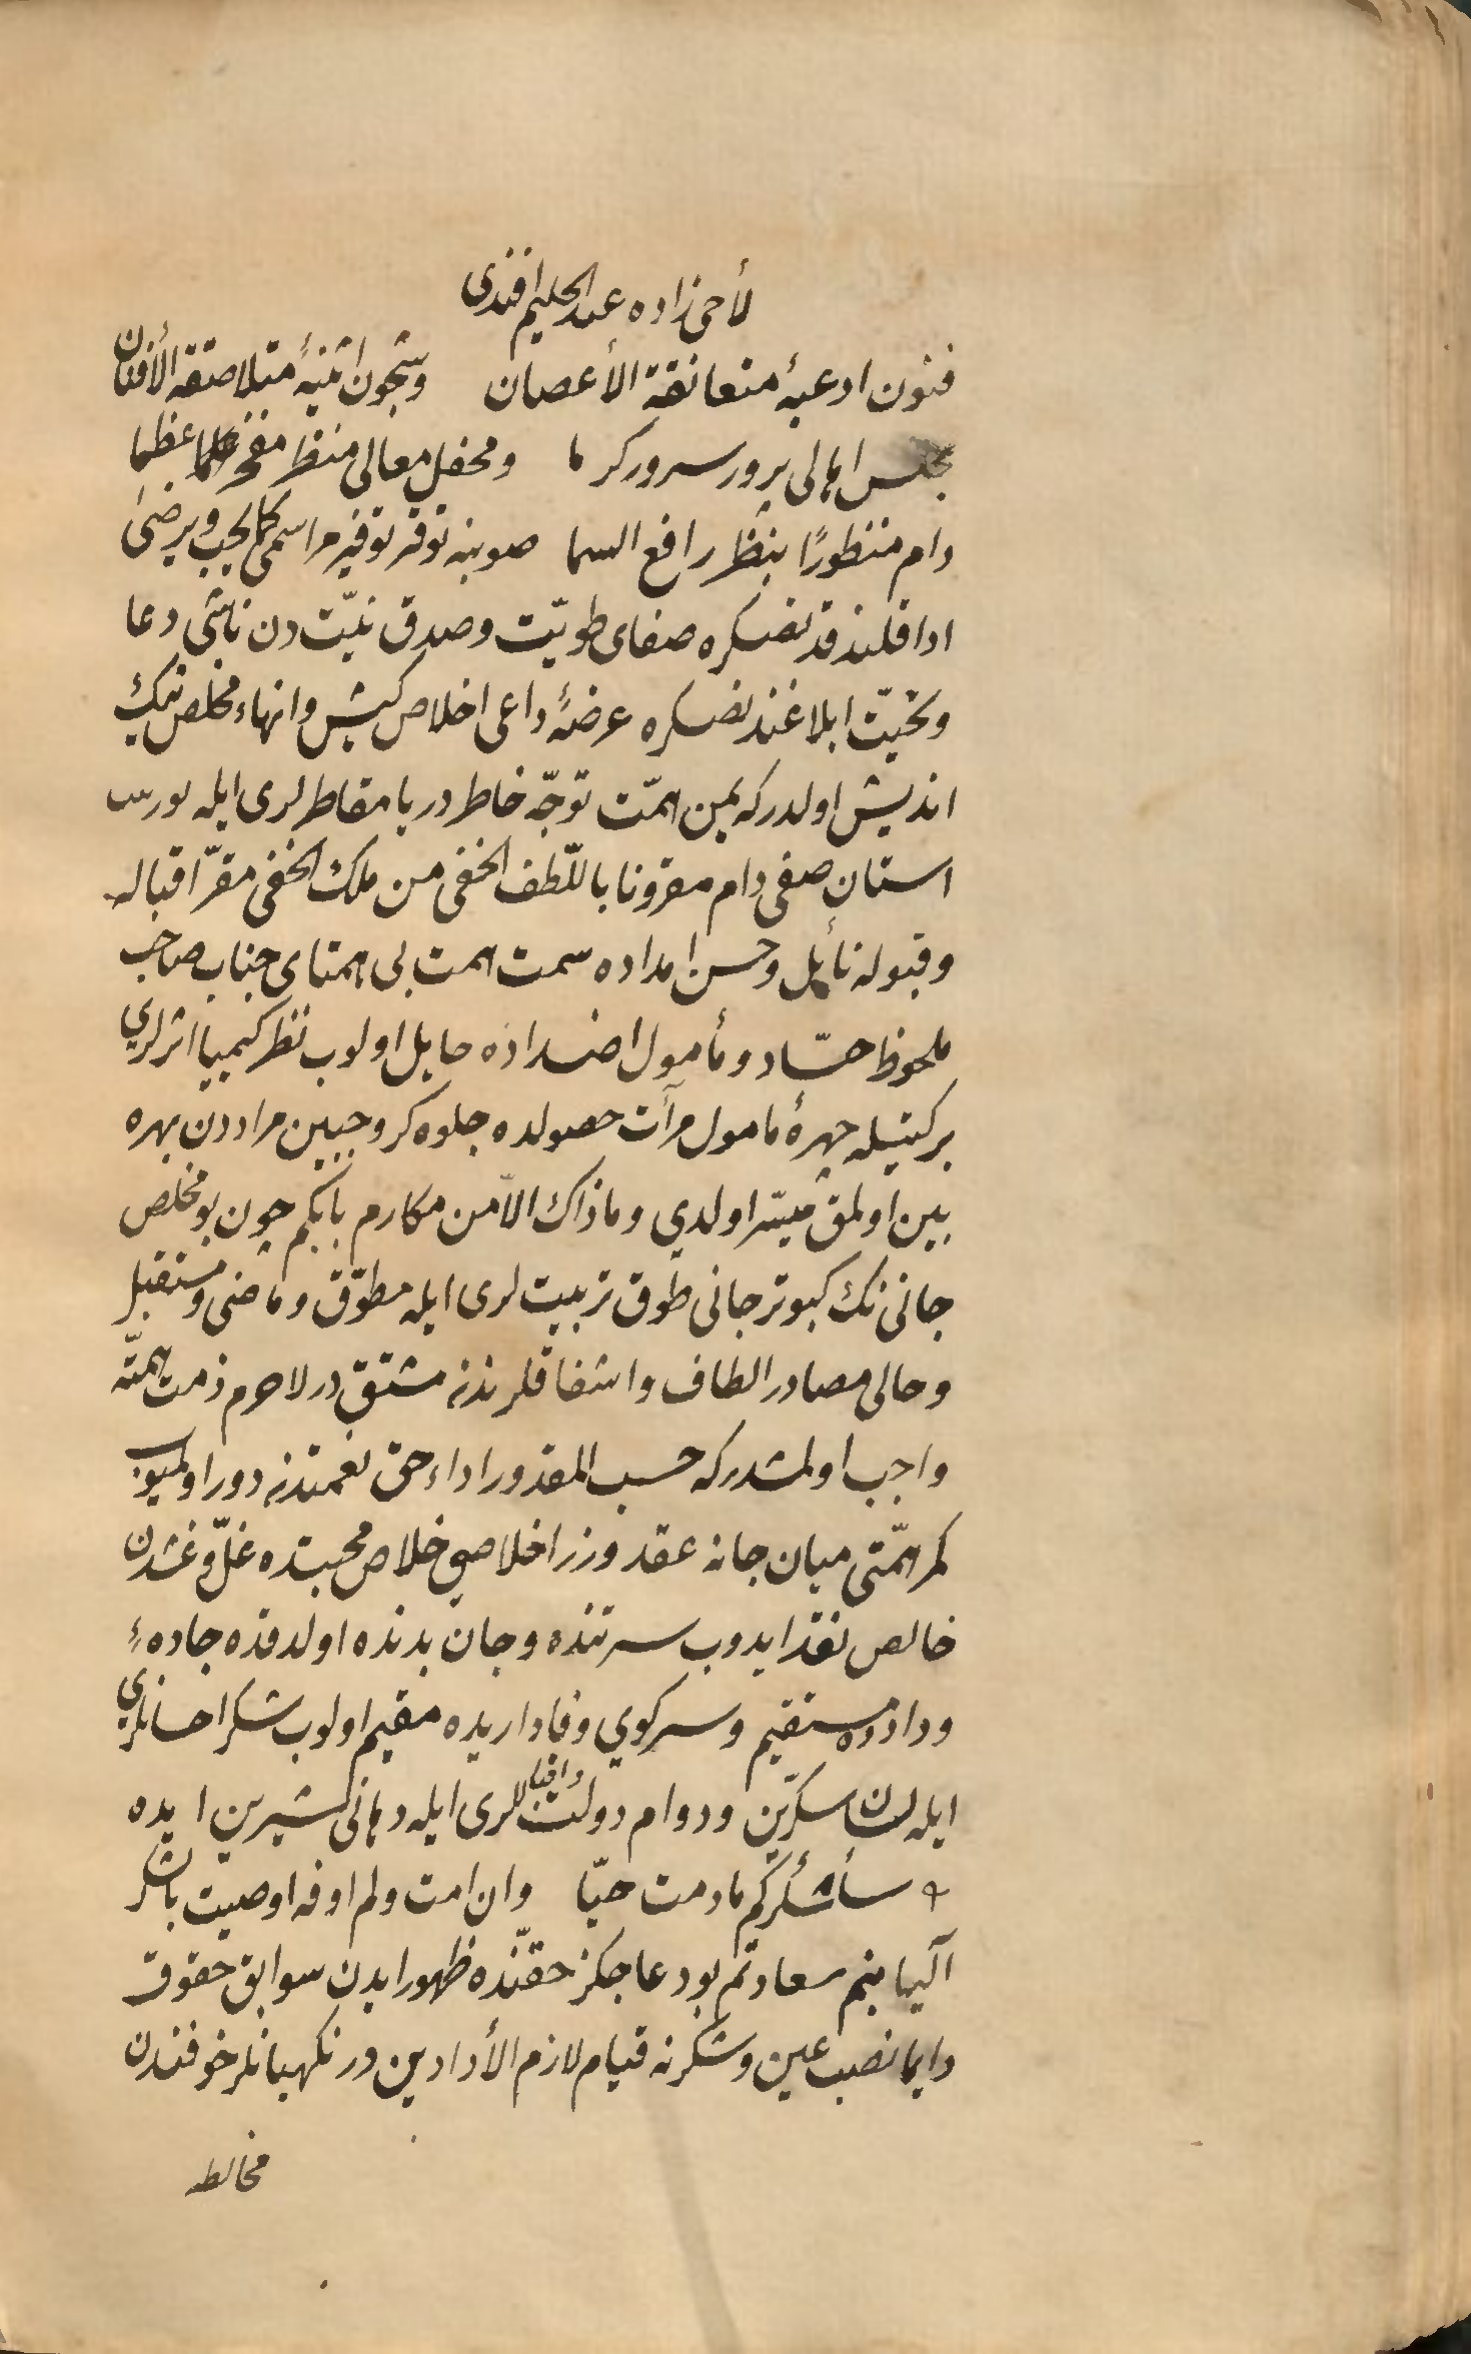 لأخی زاده عبد الحلیم افندی
فنون ادعیهٔ متعانقة الأغصان وشجون اثنیهٔ متلاصقة الأفنان
مجلس اهالی پرور سرور کرما ومحفل معالی منظر مفخر علما عظما
دام منظورًا بنظر رافع السما صوبنه توقر توفیر مراسمی کما یحب ویرضی
ادا قلندقدنصکره صفای طویّت وصدق نیّت دن ناشی دعا
وتحیّت ابلاغندنصکره عرضهٔ داعی اخلاص کیش وانهاء مخلص نیک
اندیش اولدرکه یمن همّت توجّه خاطر دریا مقاطرلری ایله
استان صفی دام مقرونا باللّطف الخفی من ملک الحفی مقرّ اقباله
وقبوله نائل وحسن امداده سمت همت بی همتای جناب صاحب
ملحوظ حسّاد ومأمول اضداده حایل اولوب نظر کیمیا اثرلري
برکتیله چهرهٔ مامول مرآت حصولده جلوه کر وجبین مراددن بهره
بین اولمق میسّر اولدي وما ذاك الاّ من مکارم بابکم چون بو مخلص
جانی نک کبوتر جانی طوق تربیت لری ایله مطوّق وماضی ومستقبل
وحالی مصادر الطاف واشفاقلرندن مشتق در لاجرم ذمت همتّه
واجب اولمشدرکه حسب المقدور اداء حق نعمتدن دور اولمیوب
کمر همّتی میان جانه عقد وزر اخلاصی خلاص محبتده غلّ وغشدن
خالص نقد ایدوب سر تنده وجان بدنده اولدقده جادهٔ
ودادده مستقیم وسر کوي وفاداریده مقیم اولوب شکر احسانلري
ایله لسان سکرّین ودوام دولت واقباللری ایله دهانی شیرین ایده
سأشکرکم مادمت حیّا وان امت ولم اوفه اوصیت بالشکر
آلیها بنم سعادتم بو دعاجیکز حقّنده ظهور ایدن سوابق حقوق
دایما نصب عین وشکرنه قیام لازم الأدا دین در نکهبانلر خوفندن
مخالطه